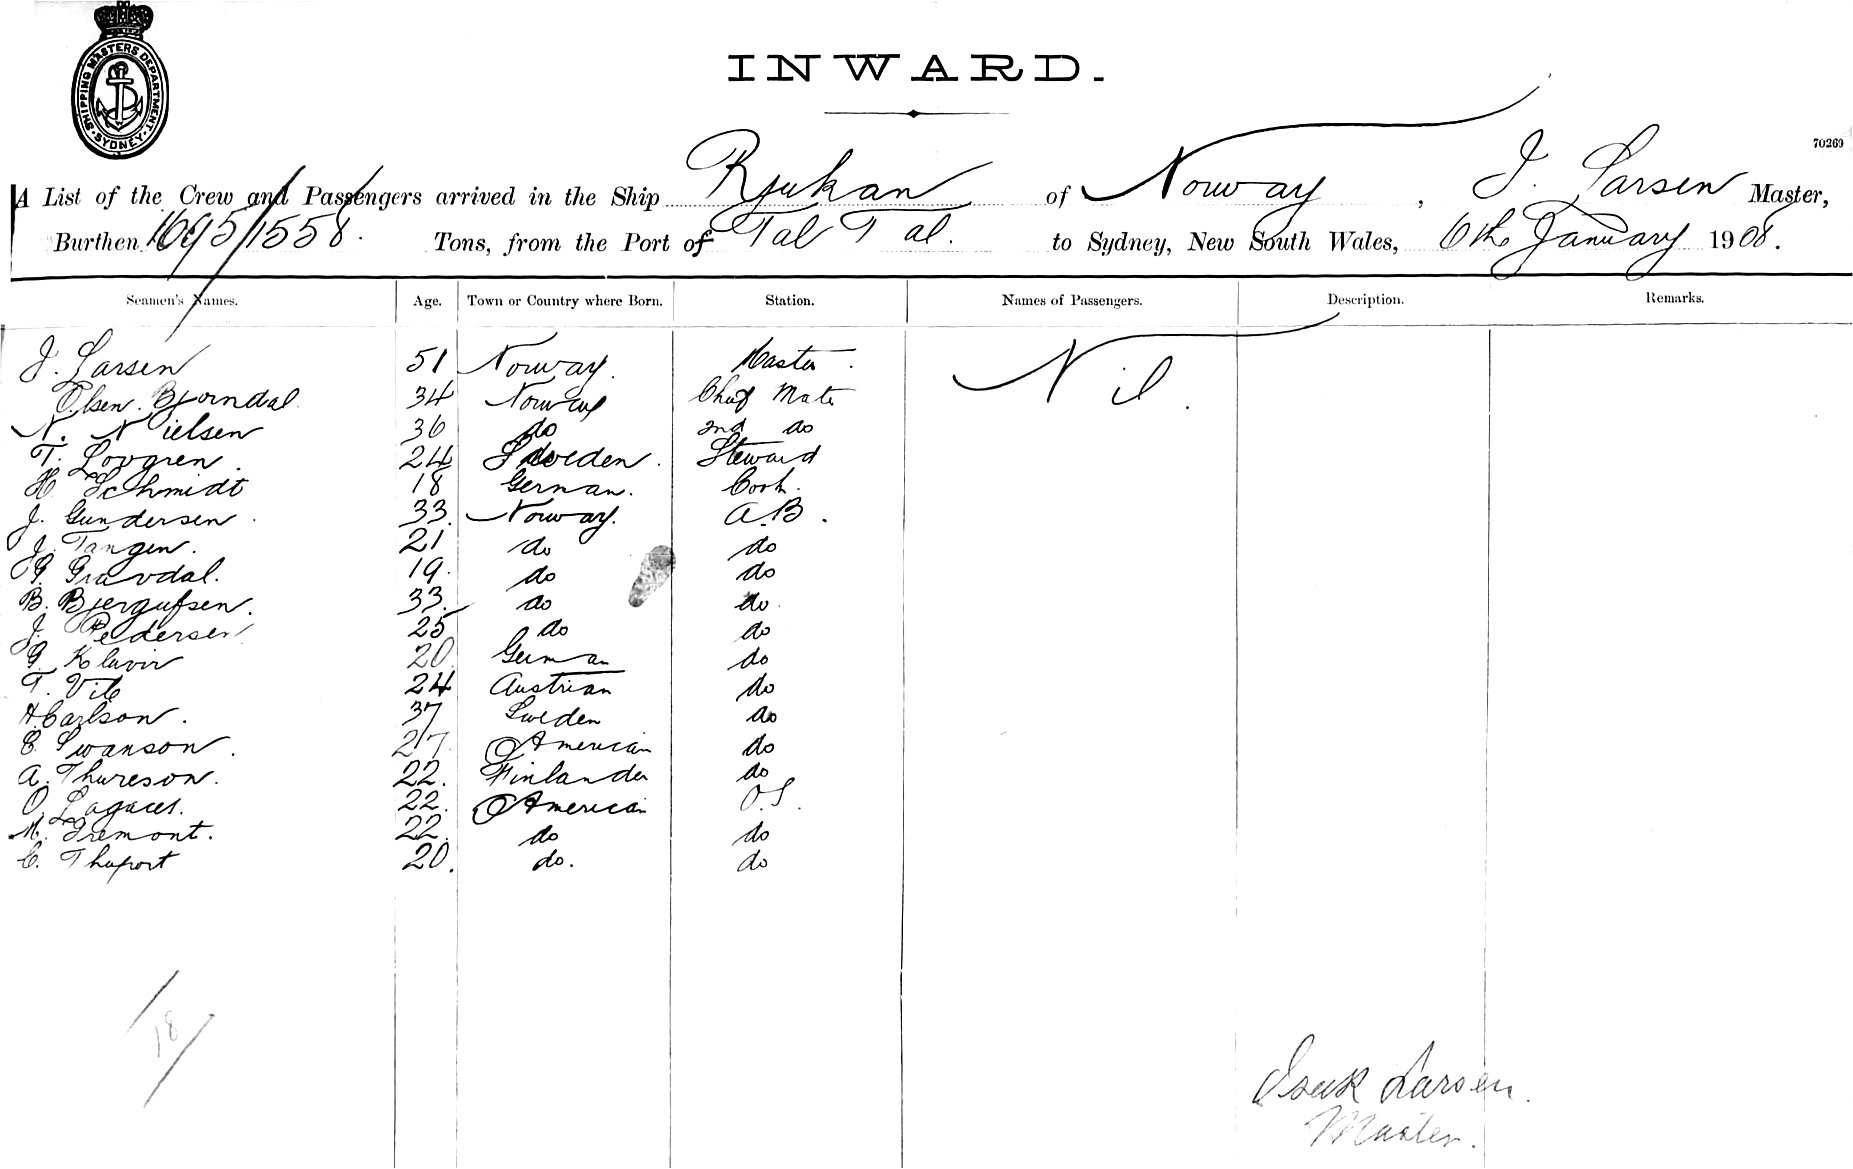 SHIPPING MASTERS DEPARTMENT. SYDNEY.
INWARD.
70269
A List of the Crew and Passengers arrived in the Ship Rjukan of Norway, I. Larsen Master,
Burthen 1695/1558. Tons, from the Port of Tal Tal. to Sydney, New South Wales, 6th January 1908.
Seamen's Names. Age. Town or Country where Born. Station. Names of Passengers. Description. Remarks.
I. Larsen 51 Norway. Master. Nil.
Olsen Bjorndal 34 Norway Chief Mate
N. Nielsen 36 do 2nd do
T. Lovgren 24 Sweden. Steward
H. Schmidt 18 German. Cook.
J. Gundersen 33. Norway. A.B.
J. Tangen. 21 do do
G. Gravdal. 19. do do
B. Bjergufsen. 33. do do
J. Pedersen 25 do do
G. Kluvir 20 German do
T. Vib 24 Austrian do
A. Carlson. 37 Sweden do
E. Swanson. 27. American do
A. Thureson. 22. Finlander do
O. 22. American O.S.
M. Fremont. 22. do do
C. 20. do. do
18
Isak Larsen.
Master.